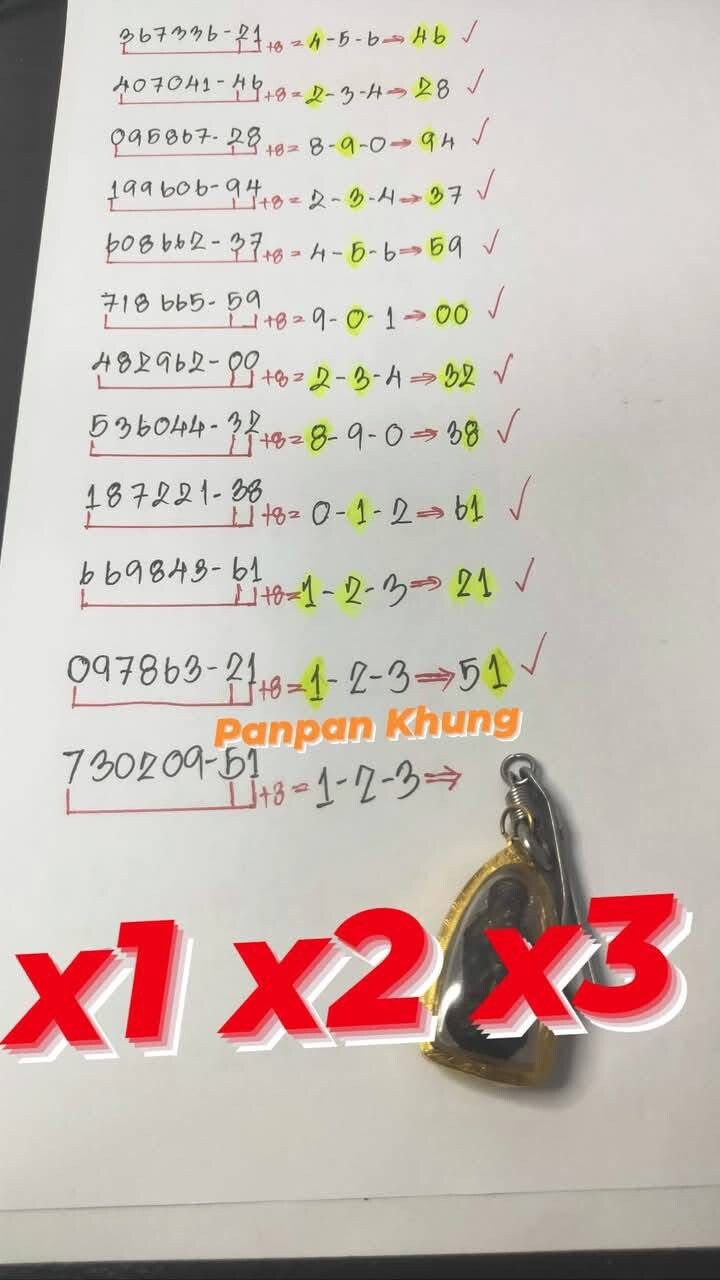 367336-21 +8 = 4-5-6 → 46 ✓
407041-46 +8 = 2-3-4 → 28 ✓
095867-28 +8 = 8-9-0 → 94 ✓
199606-94 +8 = 2-3-4 → 37 ✓
608662-37 +8 = 4-5-6 → 59 ✓
718665-59 +8 = 9-0-1 → 00 ✓
482962-00 +8 = 2-3-4 → 32 ✓
536044-32 +8 = 8-9-0 → 38 ✓
187221-38 +8 = 0-1-2 → 61 ✓
669843-61 +8 = 1-2-3 → 21 ✓
097863-21 +8 = 1-2-3 → 51 ✓
Panpan Khung
730209-51 +8 = 1-2-3 →
x1 x2 x3